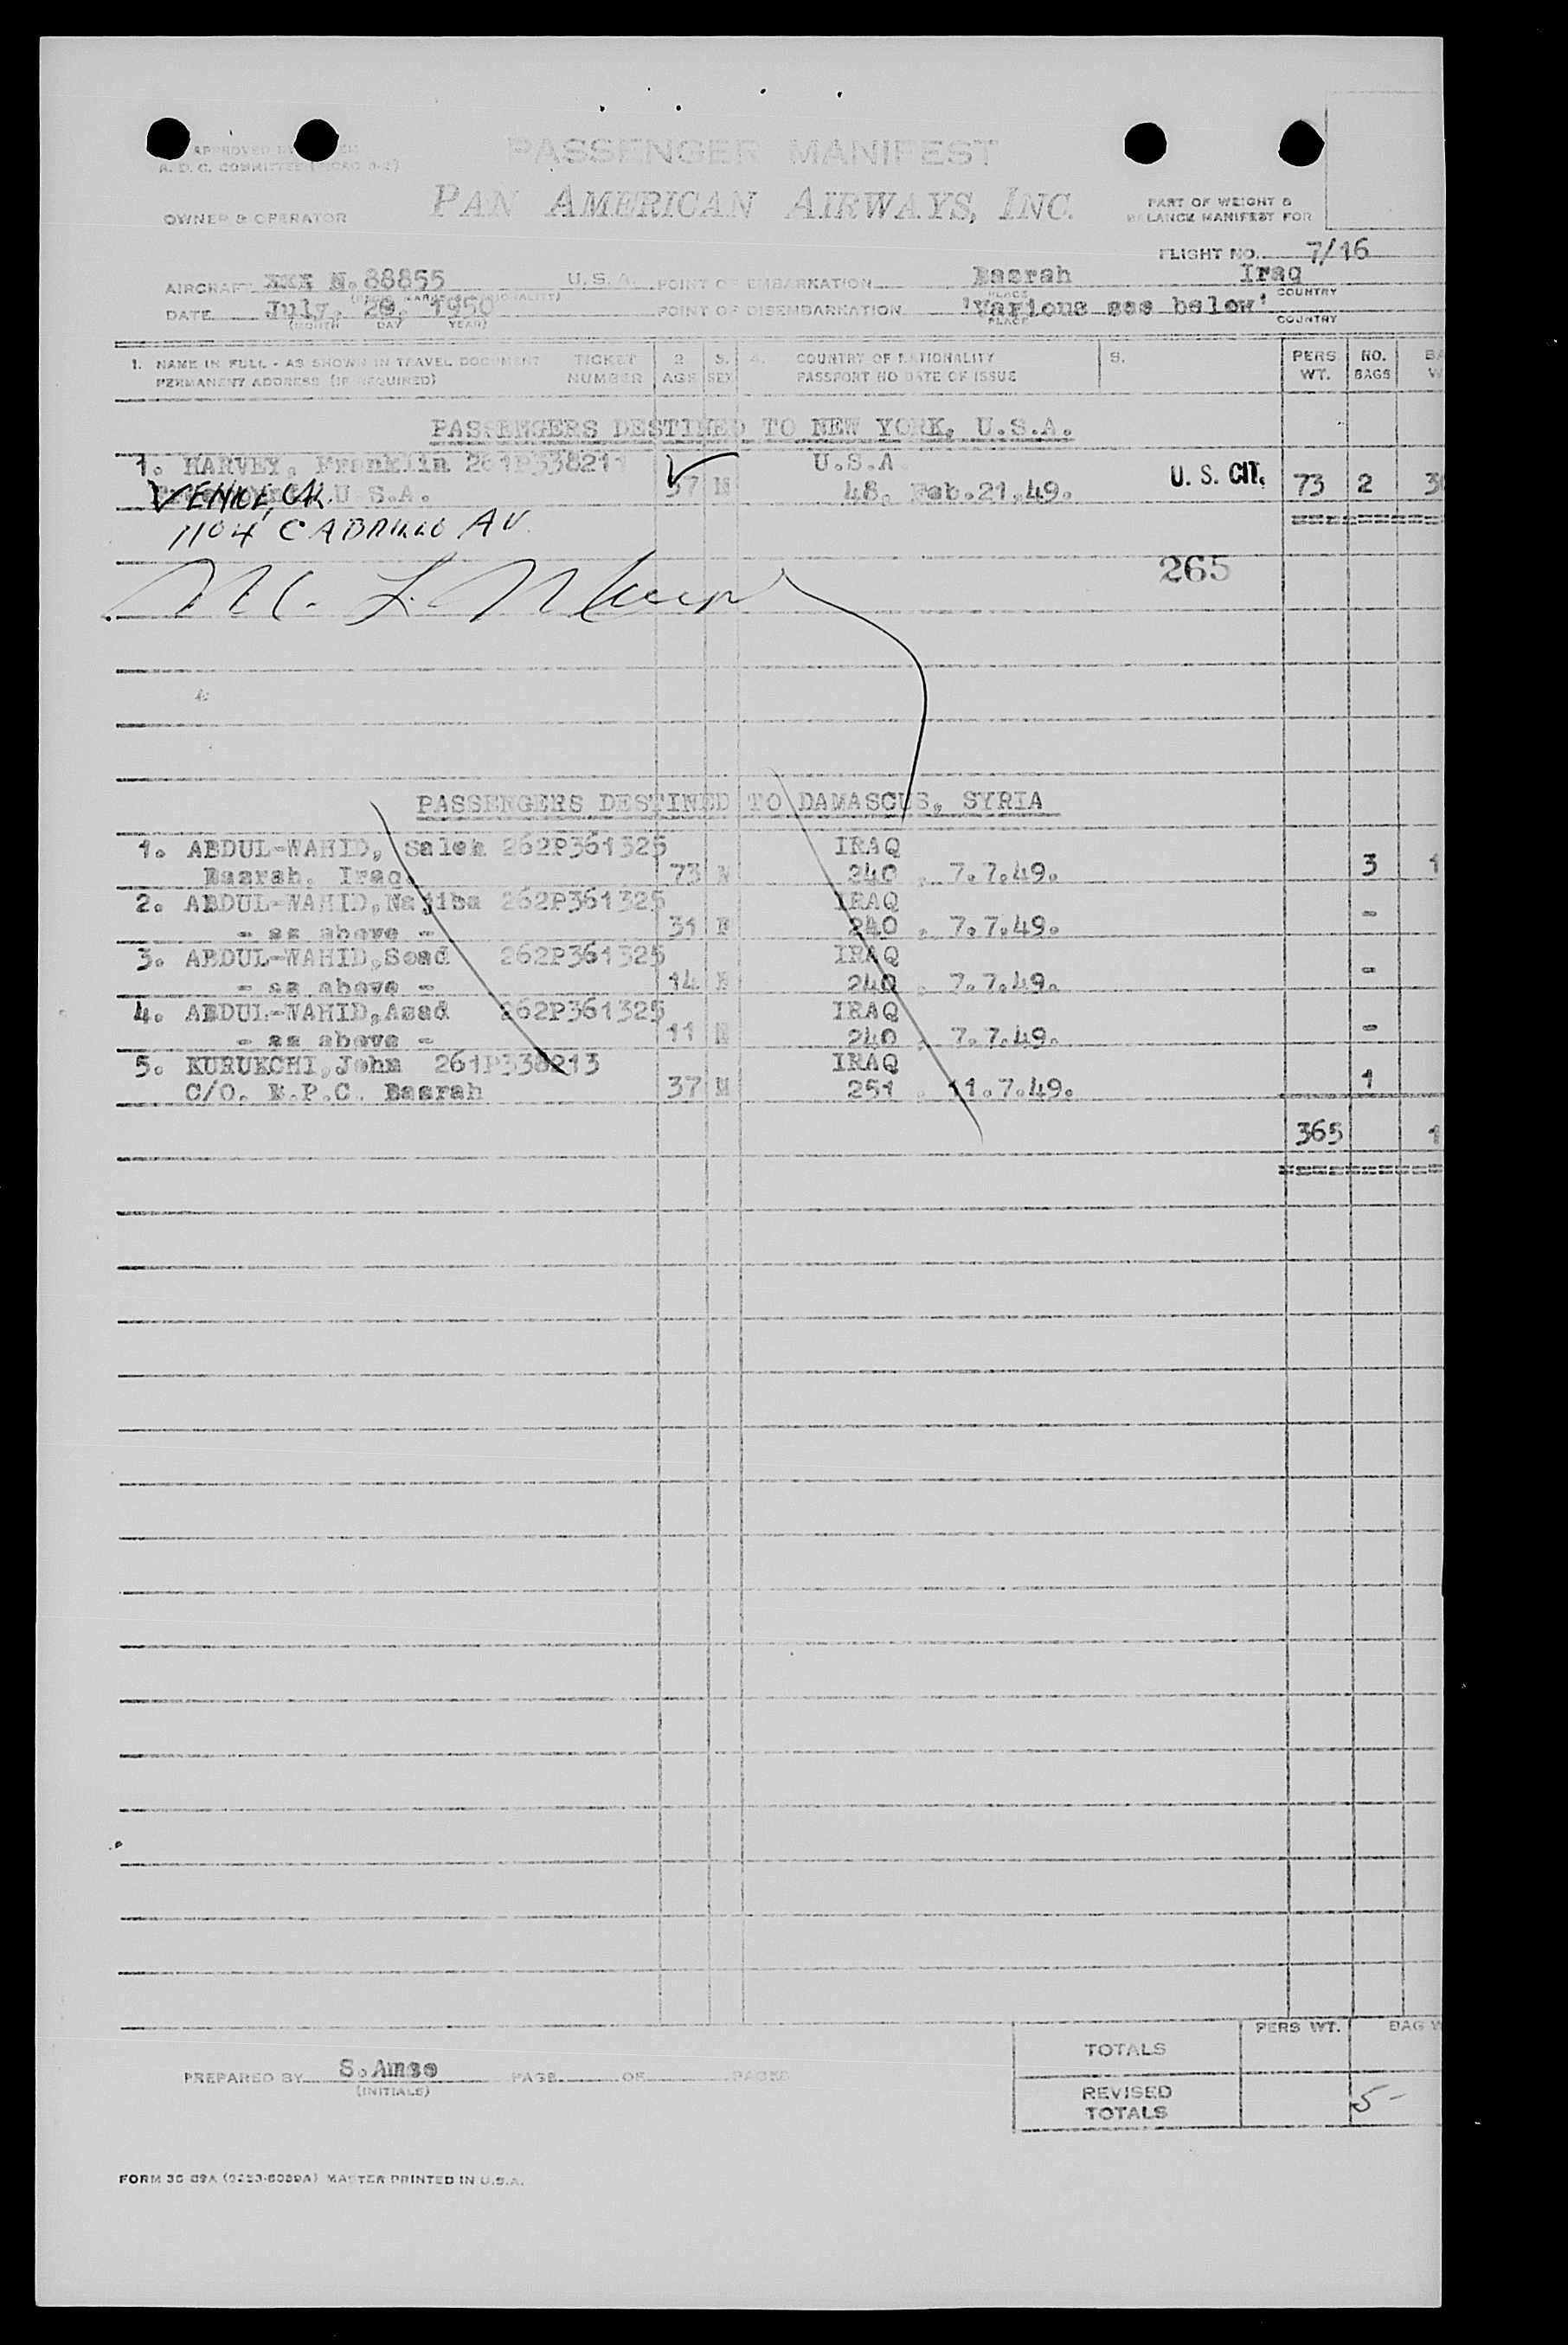 PASSENGER MANIFEST
PAN AMERICAN AIRWAYS, INC.
OWNER & OPERATOR
PART OF WEIGHT &
BALANCE MANIFEST FOR
FLIGHT NO. 7/16
AIRCRAFT N.88855 U.S.A. POINT OF EMBARKATION Basrah Iraq
PLACE COUNTRY
DATE July, 1950 POINT OF DISEMBARKATION 'Various see below'
(MONTH DAY YEAR) PLACE COUNTRY
1. NAME IN FULL - AS SHOWN IN TRAVEL DOCUMENT TICKET 2 3. 4. COUNTRY OF NATIONALITY 5. PERS NO. BA
PERMANENT ADDRESS (IF REQUIRED) NUMBER AGE SEX PASSPORT NO DATE OF ISSUE WT. BAGS W
PASSENGERS DESTINED TO NEW YORK, U.S.A.
1. HARVEY, Franklin 261P338211 U.S.A.
U.S.A. 37 M 48, Feb.21,49. U. S. CIT. 73 2
VENICE, CAL.
1104 CABRILLO AV.
265
PASSENGERS DESTINED TO DAMASCUS, SYRIA
1. ABDUL-WAHID, Saleh 262P361325 IRAQ
Basrah, Iraq. 73 M 240 , 7.7.49. 3 1
2. ABDUL-WAHID,Najiba 262P361325 IRAQ
- as above - 31 F 240 , 7.7.49. -
3. ABDUL-WAHID,Soad 262P361325 IRAQ
- as above - 14 F 240 , 7.7.49. -
4. ABDUL-WAHID,Asad 262P361325 IRAQ
- as above - 11 M 240 , 7.7.49. -
5. KURUKCHI,John 261P338213 IRAQ
C/O. B.P.C. Basrah 37 M 251 , 11.7.49. 1
365 1
PERS WT. BAG W
TOTALS
PREPARED BY S.Amso PAGE OF PAGES
(INITIALS)
REVISED
TOTALS 5-
MASTER PRINTED IN U.S.A.